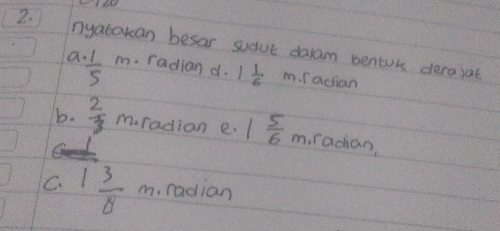 2.
nyatakan besar sudut dalam bentuk derajat
a. 1/5 m. radian d. 1 1/6 m.radian
b. 2/3 m.radian e. 1 5/6 m.radian,
c. 1 3/8 m.radian